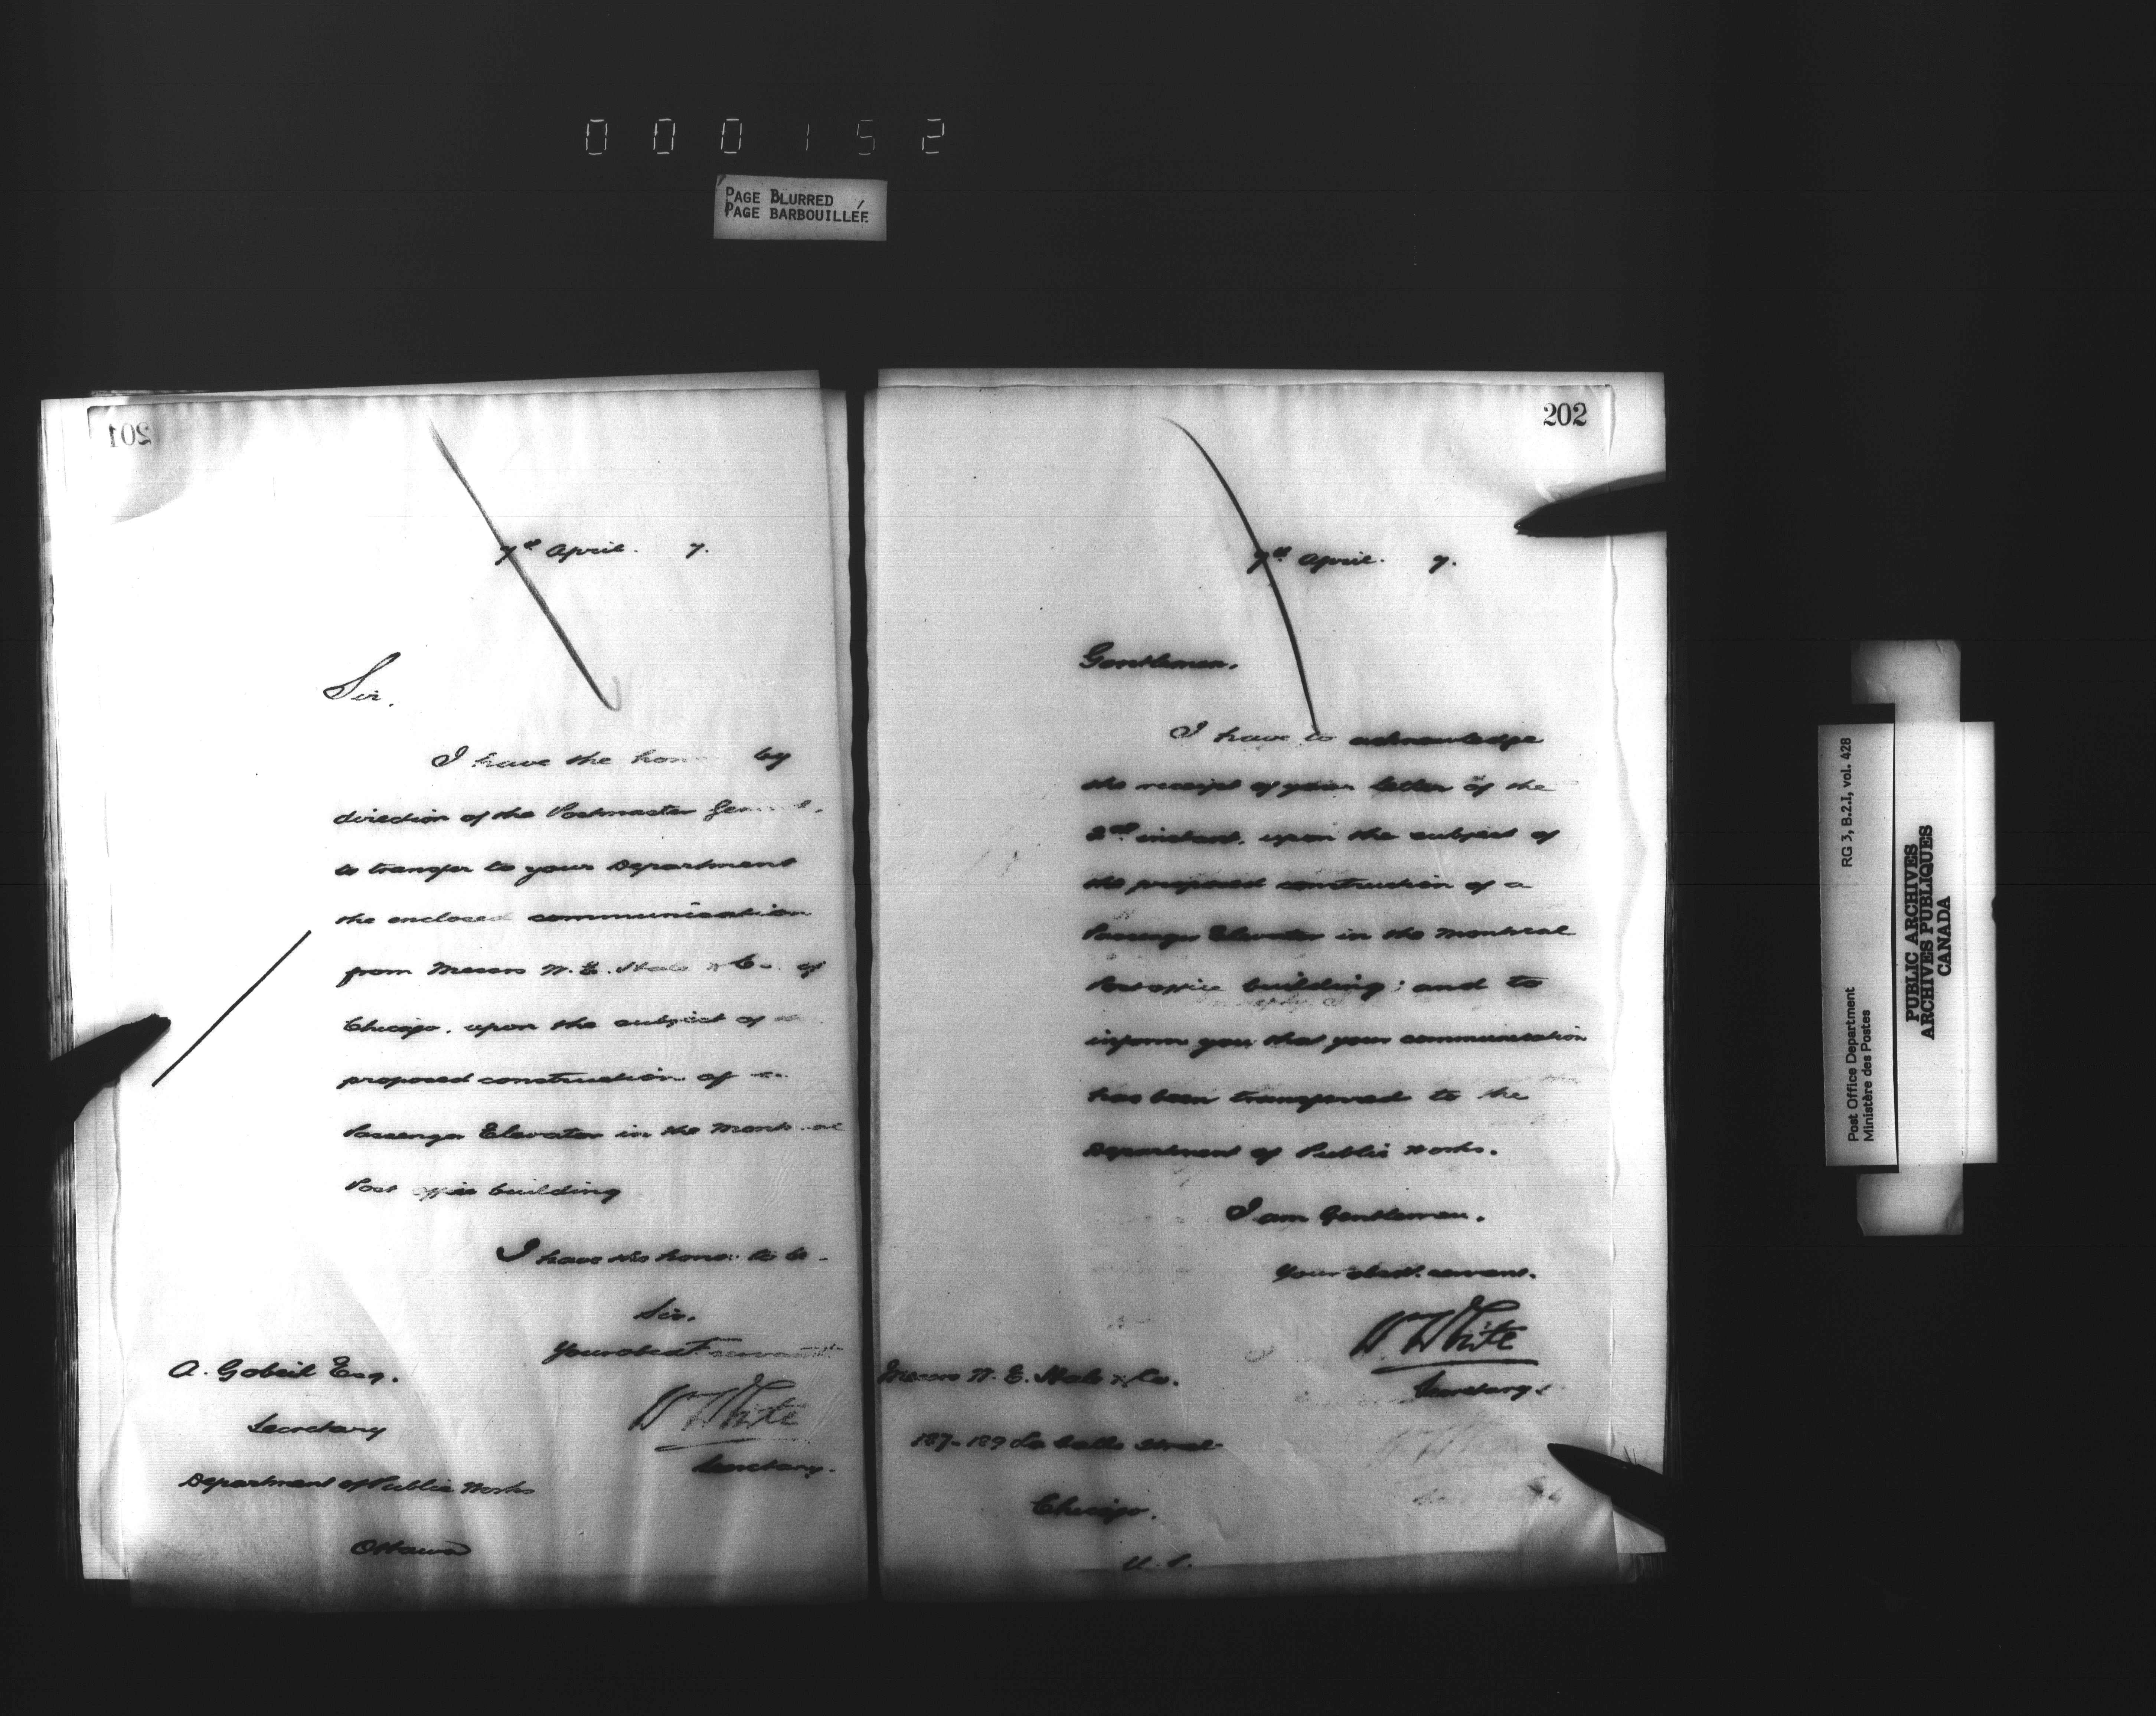 000152
PAGE BLURRED
PAGE BARBOUILLÉE
201
7th April. 7.
Sir.
I have the hon by
direction of the Postmaster General.
to transfer to your Department
the enclosed communication
from Messrs W. E. Hale & Co. of
Chicago, upon the subject of
proposed construction of a
Passenger Elevator in the Montreal
Post office building
I have the honor to be.
Sir.
Your obedt servant
W White
Secretary.
A. Gobeil Esq.
Secretary
Department of Public Works
Ottawa
202
7th April. 7.
Gentlemen.
I have to acknowledge
the receipt of your letter of the
2nd instant, upon the subject of
the proposed construction of a
Passenger Elevator in the Montreal
Post office building; and to
inform you that your communication
has been transferred to the
Department of Public Works.
I am Gentlemen.
Your obedt. servant.
W White
Secretary.
Messrs W. E. Hale & Co.
187-189 La Salle Street
Chicago.
U.S.
Post Office Department
Ministère des Postes
RG 3, B.2.I, vol. 428
PUBLIC ARCHIVES
ARCHIVES PUBLIQUES
CANADA